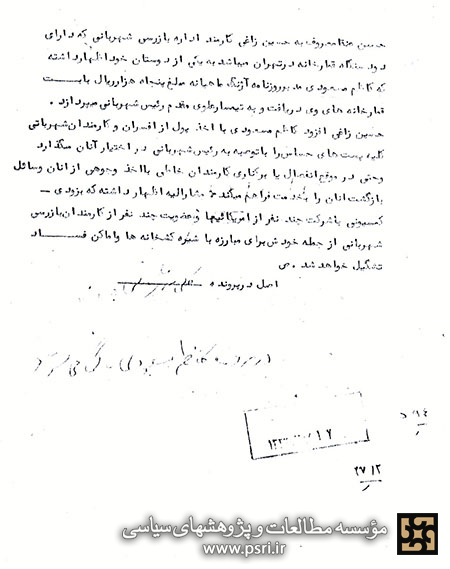 حسین معروف به حسین زاغی کارمند اداره بازرسی شهربانی که دارای
دود ستگاه قمارخانه درتهران میباشد به یکی از دوستان خود اظهارداشته
که کاظم مسعودی مد یرروزنامه آژنگ ماهیانه مبلغ پنجاه هزارریال بابت
قمارخانه های وی دریافت و به تیمسارعلوی مقدم رئیس شهربانی میپردازد .
حسین زاغی افزود کاظم مسعودی با اخذ پول از افسران و کارمندان شهربانی
کلیه پست های حساس را باتوصیه به رئیس شهربانی در اختیار آنان میگذارد
وحتی در موقع انفصال یا برکناری کارمندان خاطی بااخذ وجوهی از آنان وسائل
بازگشت آنان را بخدمت فراهم میکند مشارالیه اظهار داشته که بزودی
کمسیونی باشرکت چند نفر از آمریکائیها وعضویت چند نفر از کارمندان بازرسی
شهربانی از جمله خودش برای مبارزه با شیره کشخانه ها واماکن فساد
تشکیل خواهد شد .
اصل درپرونده
در پرونده کاظم مسعودی
۲۷/۱۲
مؤسسه مطالعات و پژوهشهای سیاسی
www.psri.ir